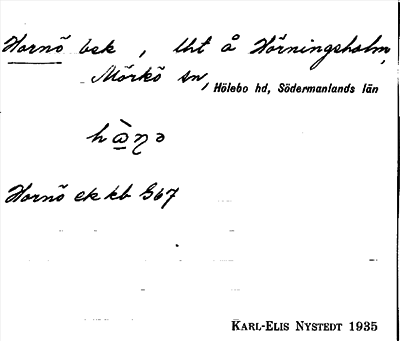 Hornö bsk, lht å Hörningsholm,
Mörkö sn, Hölebo hd, Södermanlands län
hòṇə
Hornö ek kb G67
KARL-ELIS NYSTEDT 1935